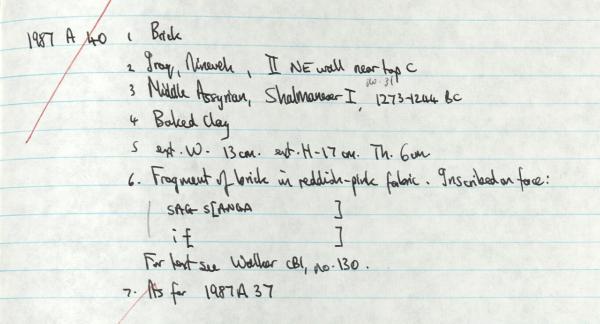 1987 A 40 1 Brick
2 Iraq, Nineveh, II NE wall near top C
no. 31
3 Middle Assyrian, Shalmaneser I, 1273-1244 BC
4 Baked Clay
5 ext. W. 13cm. ext. H-17cm. Th. 6cm
6. Fragment of brick in reddish-pink fabric. Inscribed on face:
SAG S[ANGA ]
i f[ ]
For text see Walker CBI, no. 130.
7. As for 1987A 37